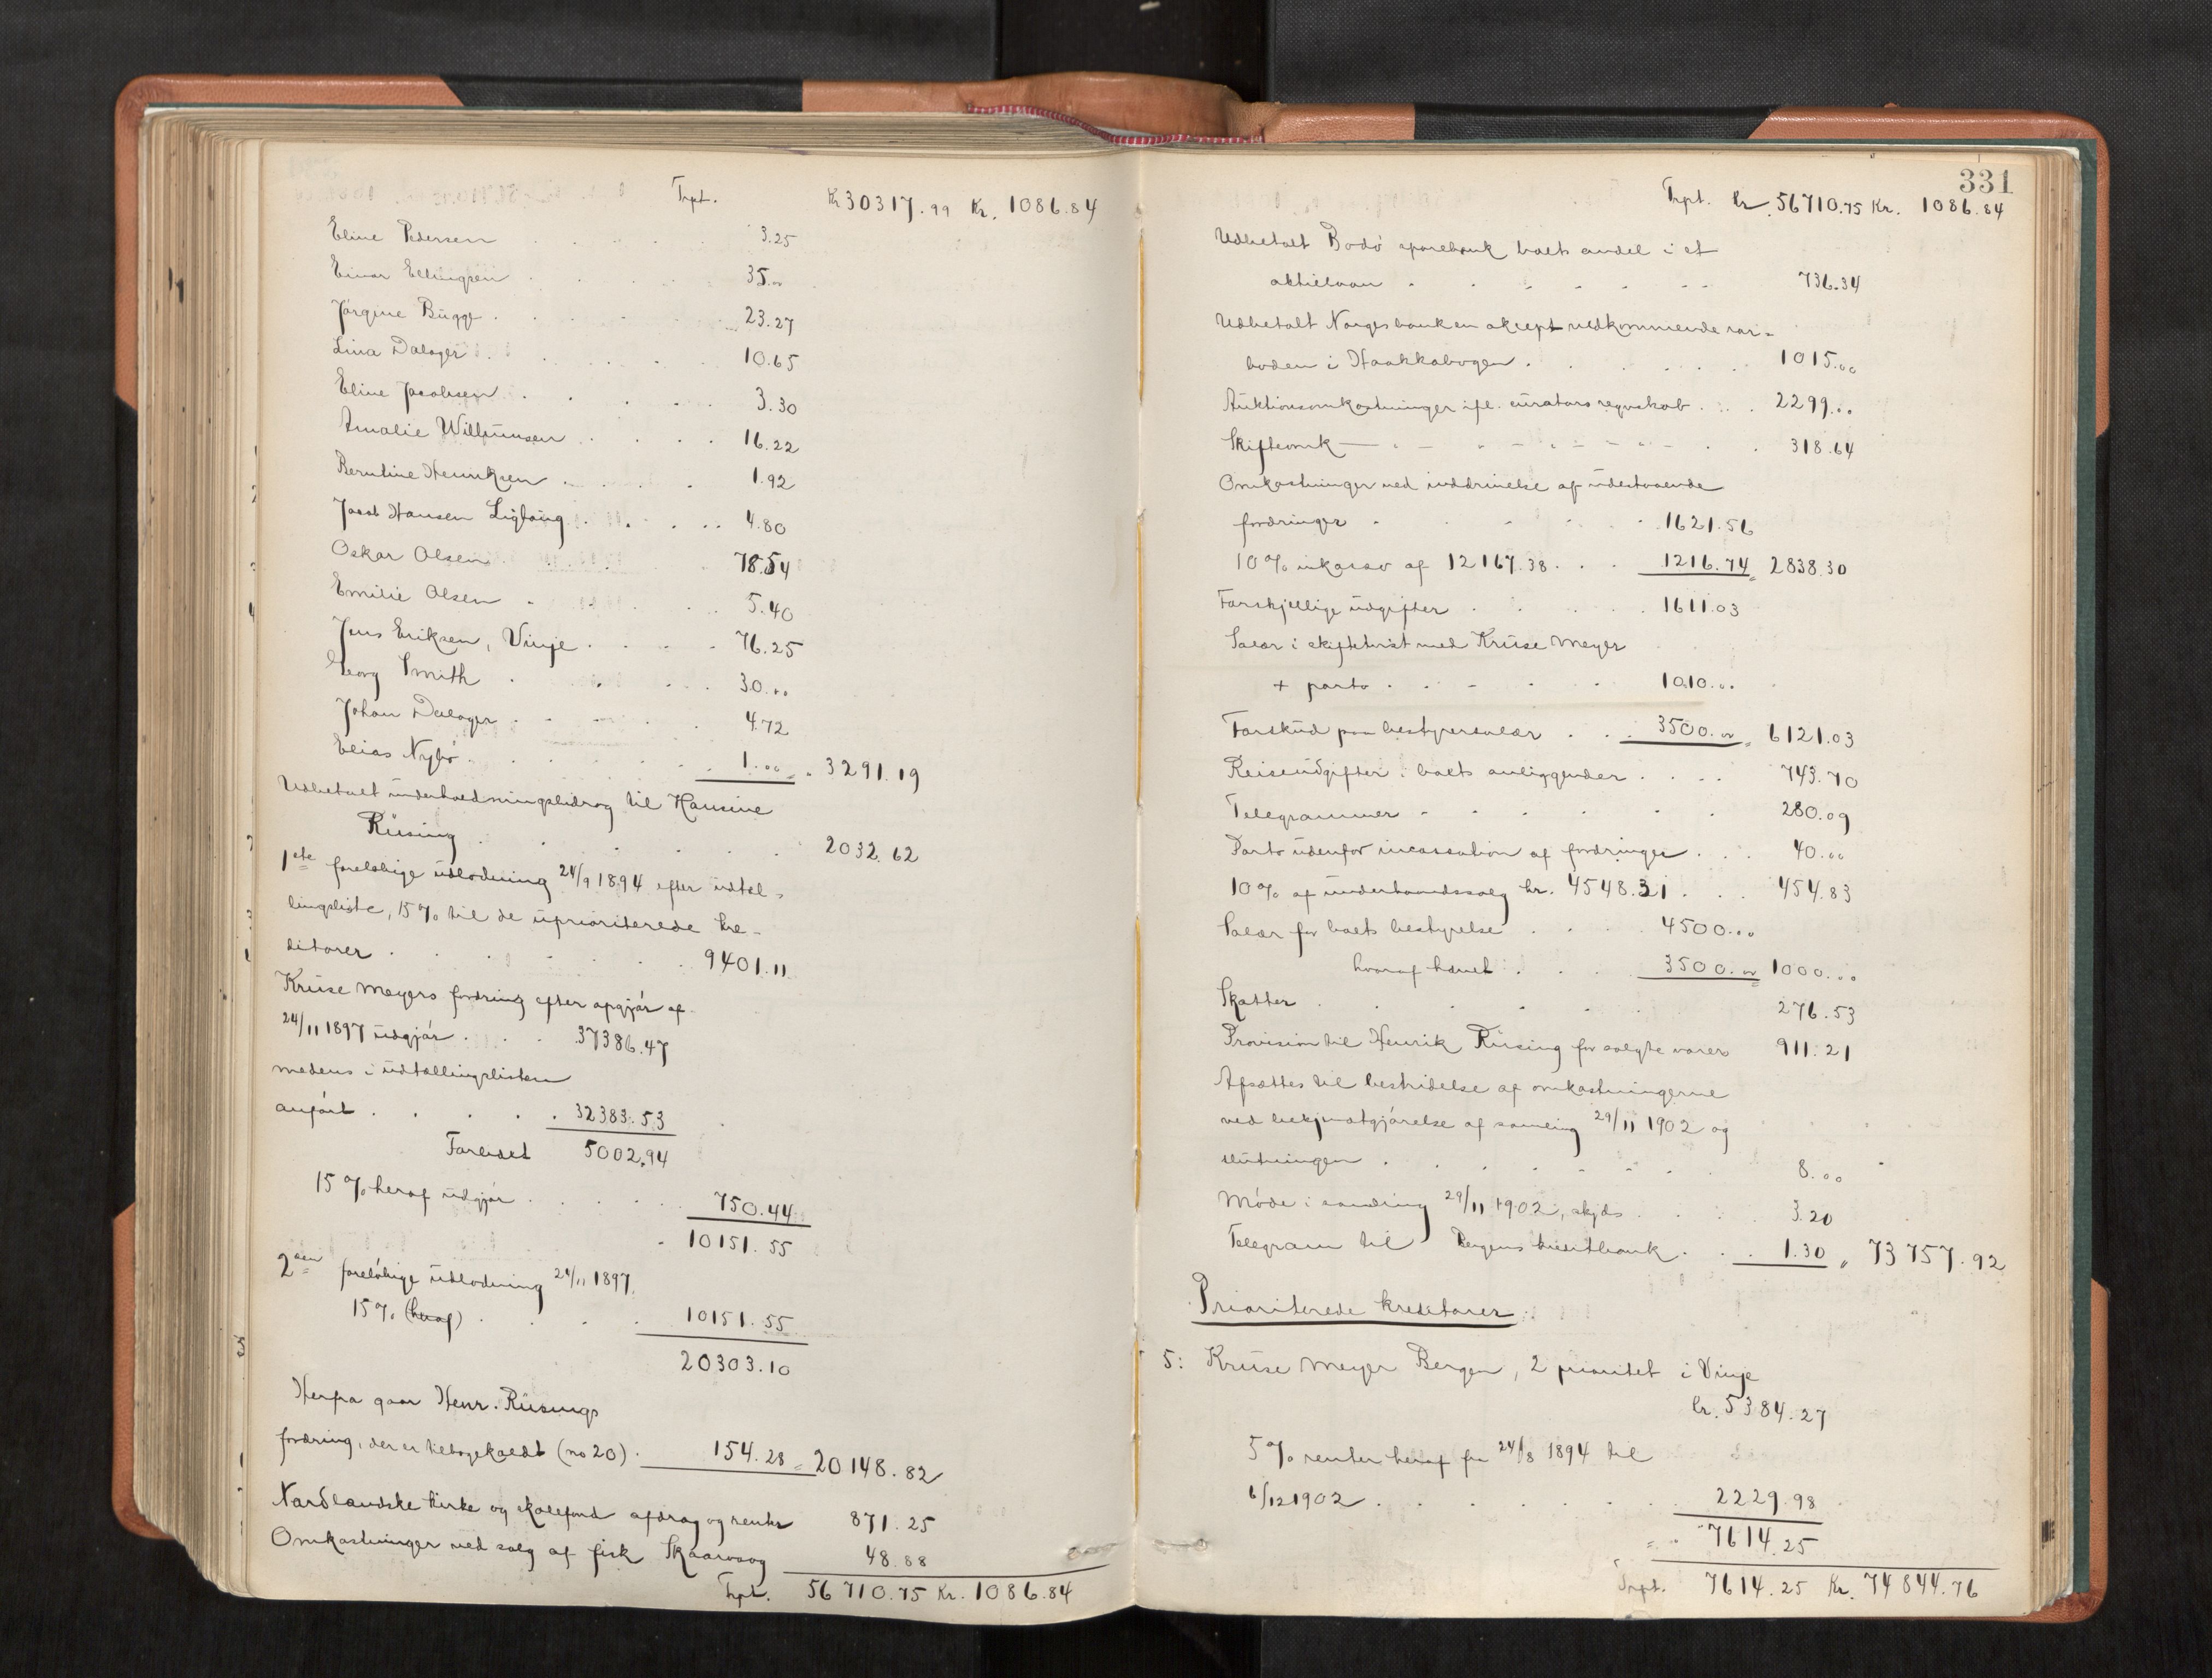 Trpt. Kr 30317.99 Kr. 1086.84
Eline Pedersen . . . . 3.25
Einar Ellingsen . . . . 35.00
Jörgine Bugge . . . . 23.27
Lina Dalager . . . . 10.65
Eline Jacobsen . . . . 3.30
Amalie Willumsen . . . . 16.22
Berntine Henriksen . . . . 1.92
Jacob Hansen Ligtang . . . . 4.80
Oskar Olsen . . . . 78.54
Emilie Olsen . . . . 5.40
Jens Eriksen, Vinje . . . . 76.25
Georg Smith . . . . 30.00
Johan Dalager . . . . 4.72
Elias Nybö . . . . 1.00 " 3291.19
Udbetalt underholdningsbidrag til Hansine
Rüsing . . . . 2032.62
1ste foreløbige udlodning 24/9 1894 efter udtæl-
lingsliste, 15% til de uprioriterede kre-
ditorer . . . . 9401.11
Kruse Meyers fordring efter opgjør af
24/11 1897 udgjør . . . 37386.47
medens i udtællingslisten
anført . . . . 32383.53
Forlidet 5002.94
15% heraf udgjør . . . . 750.44
10151.55
2den foreløbige udlodning 24/11 1897.
15% (heraf) . . . . 10151.55
20303.10
Herfra gaar Henr. Rüsings
fordring, der er tilbagekaldt (no 20) . 154.28 = 20148.82
Nordlandske kirke og skolefond afdrag og renter 871.25
Omkostninger ved salg af fisk Skaarvaag 48.88
Trpt. 56710.75 Kr. 1086.84
331
Trpt. kr. 56710.75 Kr. 1086.84
Udbetalt Bodö sparebank boets andel i et
aktielaan . . . . 736.34
Udbetalt Norges bank en akcept vedkommende ror-
boden i Haakkabogen . . . . 1015.00
Auktionsomkostninger ifl. curators regnskab . . . 2299.00
Skifteomk — " — . . . . 318.64
Omkostninger ved inddrivelse af udestaaende
fordringer . . . . 1621.56
10% inkasso af 12167.38 . . . 1216.74 = 2838.30
Forskjellige udgifter . . . . 1611.03
Salær i skiftetvist med Kruse Meyer
+ porto . . . . 1010.00
Forskud paa bestyrersalær . . . 3500.00 = 6121.03
Reiseudgifter i boets anliggender . . . . 743.70
Telegrammer . . . . 280.09
Porto udenfor incassation af fordringer . . . 40.00
10% af underhaandssalg kr. 4548.31 . . . 454.83
Salær for boets bestyrelse . . . . 4500.00
hvoraf hævet . . . . 3500.00 1000.00
Skatter . . . . 276.53
Provision til Henrik Rüsing for solgte varer 911.21
Afsættes til bestridelse af omkostningerne
ved bekjendtgjørelse af samling 29/11 1902 og
slutningen . . . . 8.00
Möde i samling 29/11 1902, skjds . . . . 3.20
Telegram til Bergens kreditbank . . . 1.30 " 73757.92
Prioriterede kreditorer:
5: Kruse Meyer Bergen, 2 prioritet i Vinje
kr. 5384.27
5% renter heraf fra 24/8 1894 til
6/12 1902 . . . . 2229.98
7614.25
Trpt. 7614.25 Kr. 74844.76